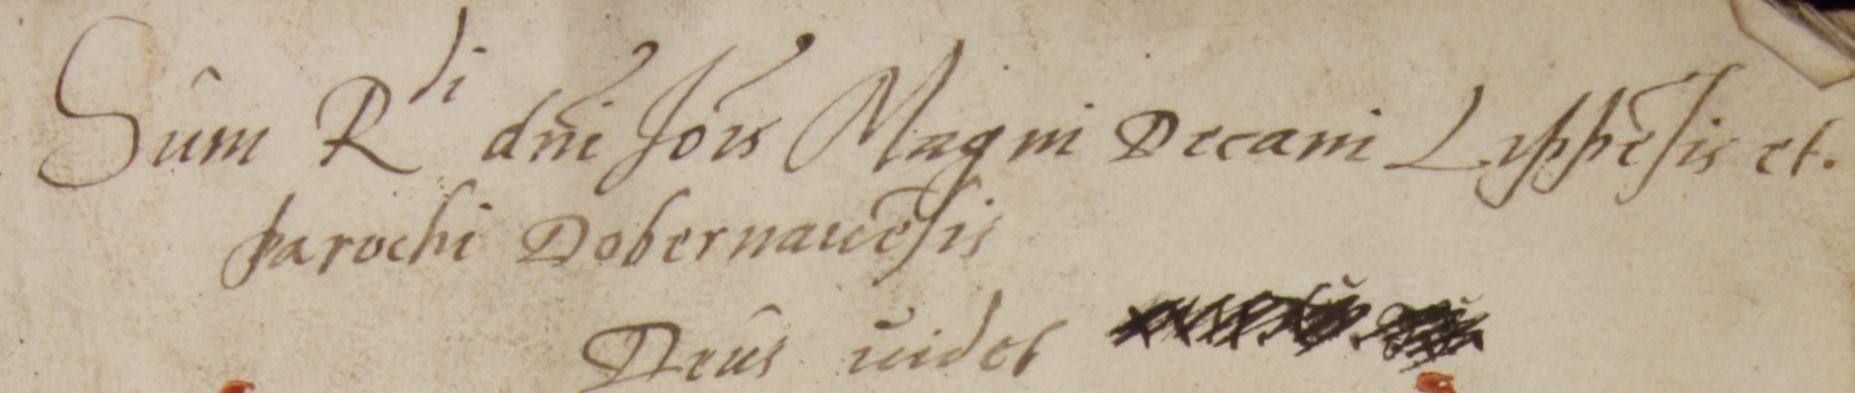 Sûm R di dñi Joïs Magni Decani Lippēsis et.
parochi Dobernauēsis
Deûs uidet